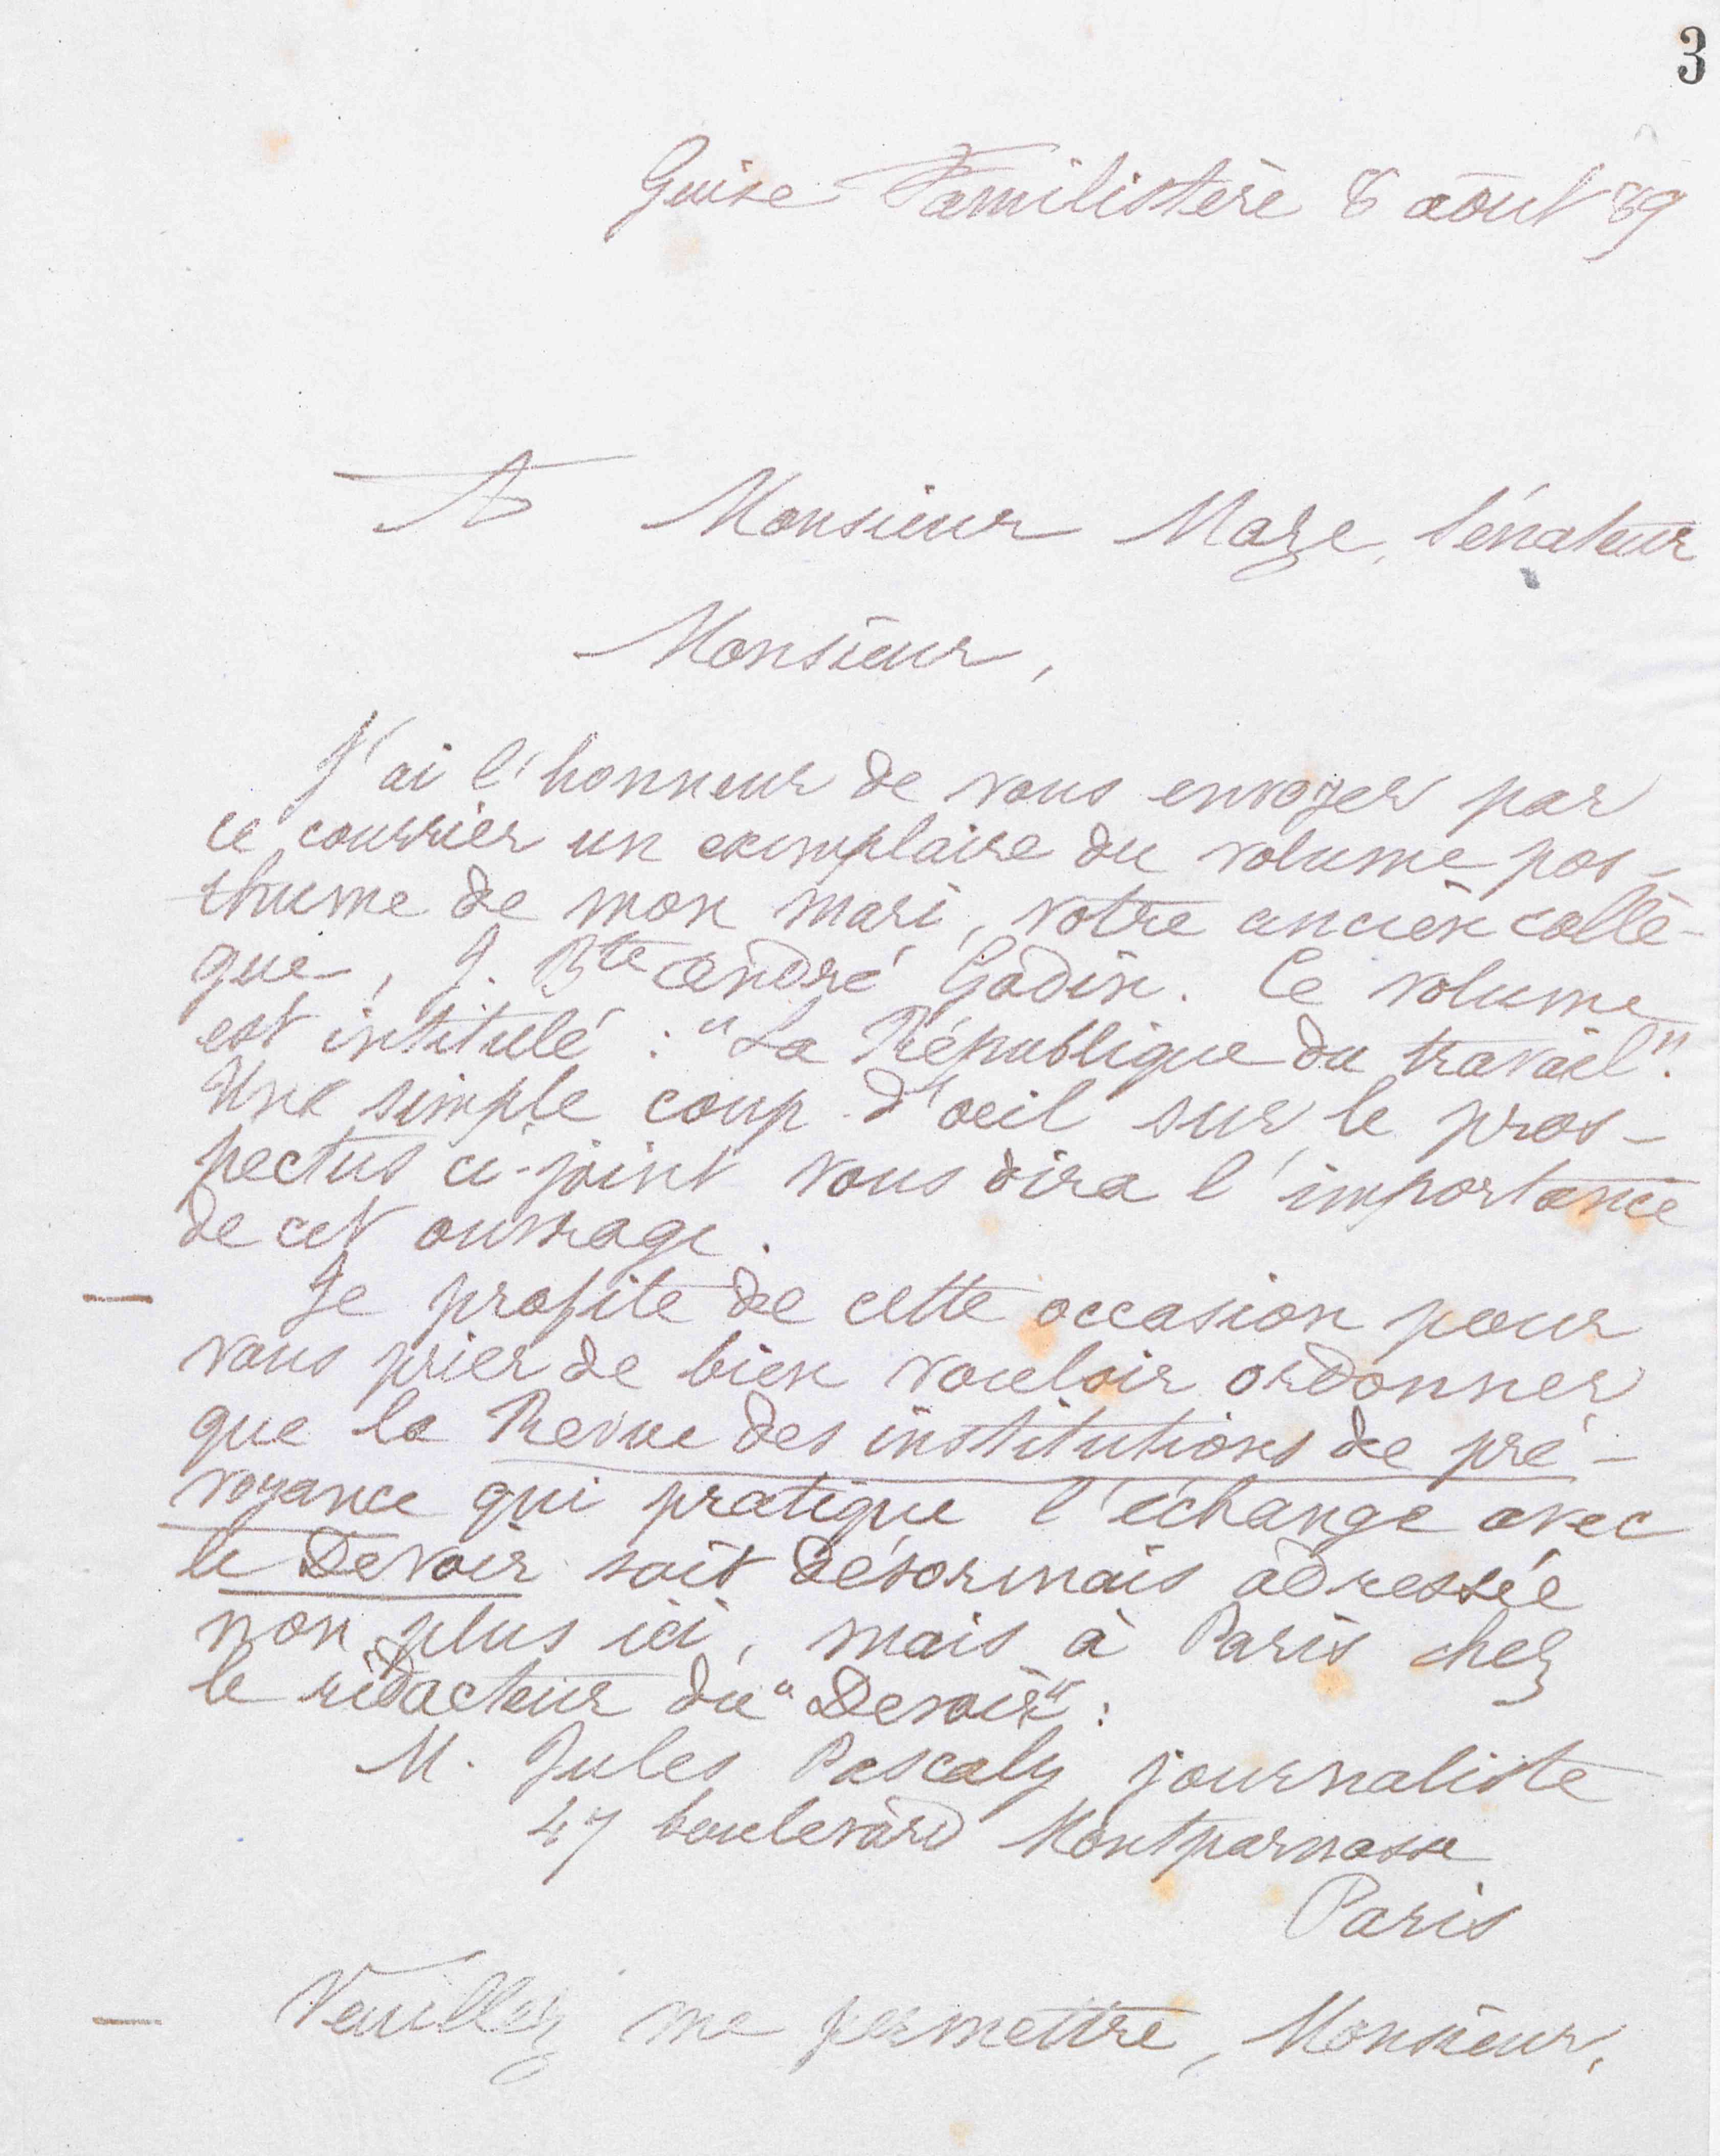 3
Guise Familistère 8 août 89
A Monsieur Maze, Sénateur
Monsieur,
J'ai l'honneur de vous envoyer par
ce courrier un exemplaire du volume pos-
thume de mon mari, votre ancien collè-
gue, J. Bte André Godin. Ce volume
est intitulé : "La République du travail".
Une simple coup d'oeil sur le pros-
pectus ci-joint vous dira l'importance
de cet ouvrage.
— Je profite de cette occasion pour
vous prier de bien vouloir ordonner
que la Revue des institutions de pré-
voyance qui pratique l'échange avec
le Devoir soit désormais adressée
non plus ici, mais à Paris chez
le rédacteur du "Devoir" :
M. Jules Pascaly journaliste
47 boulevard Montparnasse
Paris
— Veuillez me permettre, Monsieur,